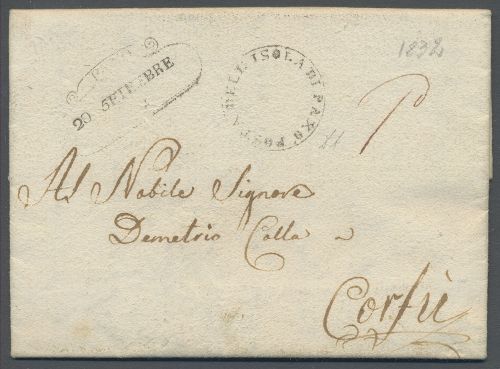 20 SETTEMBRE
DELL ISOLA DI PAXO POSTA
1832
Al Nobile Signore
Demetrio Calla
Corfù